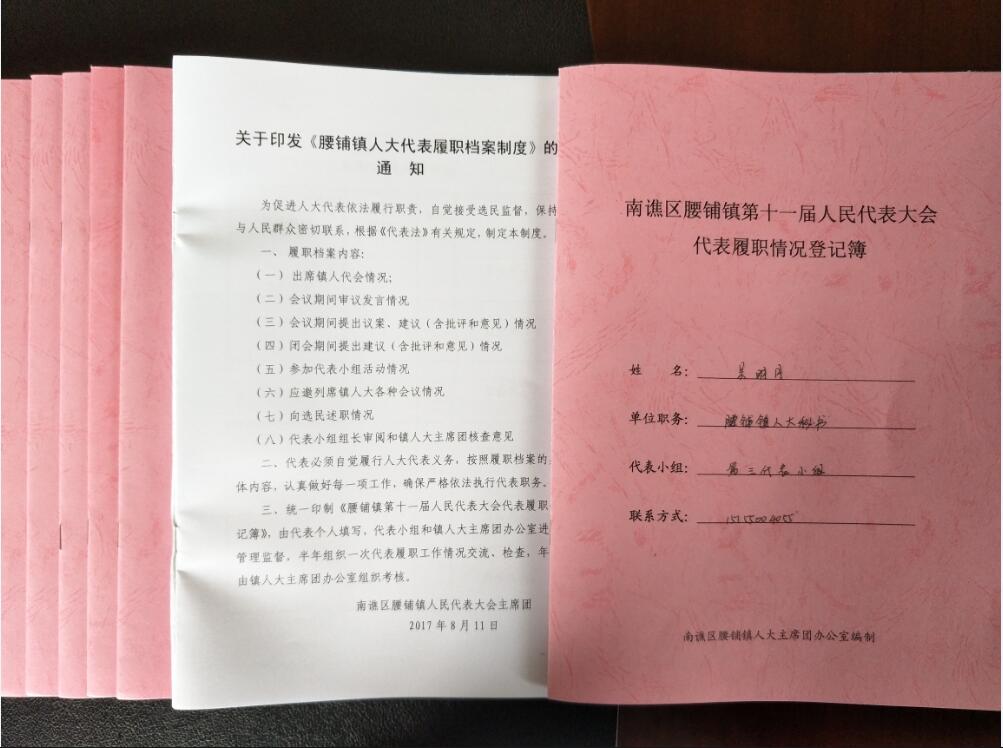 关于印发《腰铺镇人大代表履职档案制度》的
通 知
为促进人大代表依法履行职责,自觉接受选民监督,保持
与人民群众密切联系,根据《代表法》有关规定,制定本制度。
一、 履职档案内容:
(一) 出席镇人代会情况;
(二)会议期间审议发言情况
(三)会议期间提出议案、建议(含批评和意见)情况
(四)闭会期间提出建议(含批评和意见)情况
(五)参加代表小组活动情况
(六)应邀列席镇人大各种会议情况
(七)向选民述职情况
(八)代表小组组长审阅和镇人大主席团核查意见
二、代表必须自觉履行人大代表义务,按照履职档案的
体内容,认真做好每一项工作,确保严格依法执行代表职务。
三、统一印制《腰铺镇第十一届人民代表大会代表履职
记簿》,由代表个人填写,代表小组和镇人大主席团办公室进
管理监督,半年组织一次代表履职工作情况交流、检查,年
由镇人大主席团办公室组织考核。
南谯区腰铺镇人民代表大会主席团
2017年8月11日
南谯区腰铺镇第十一届人民代表大会
代表履职情况登记簿
姓 名:
单位职务: 腰铺镇人大秘书
代表小组: 第三代表小组
联系方式:
南谯区腰铺镇人大主席团办公室编制